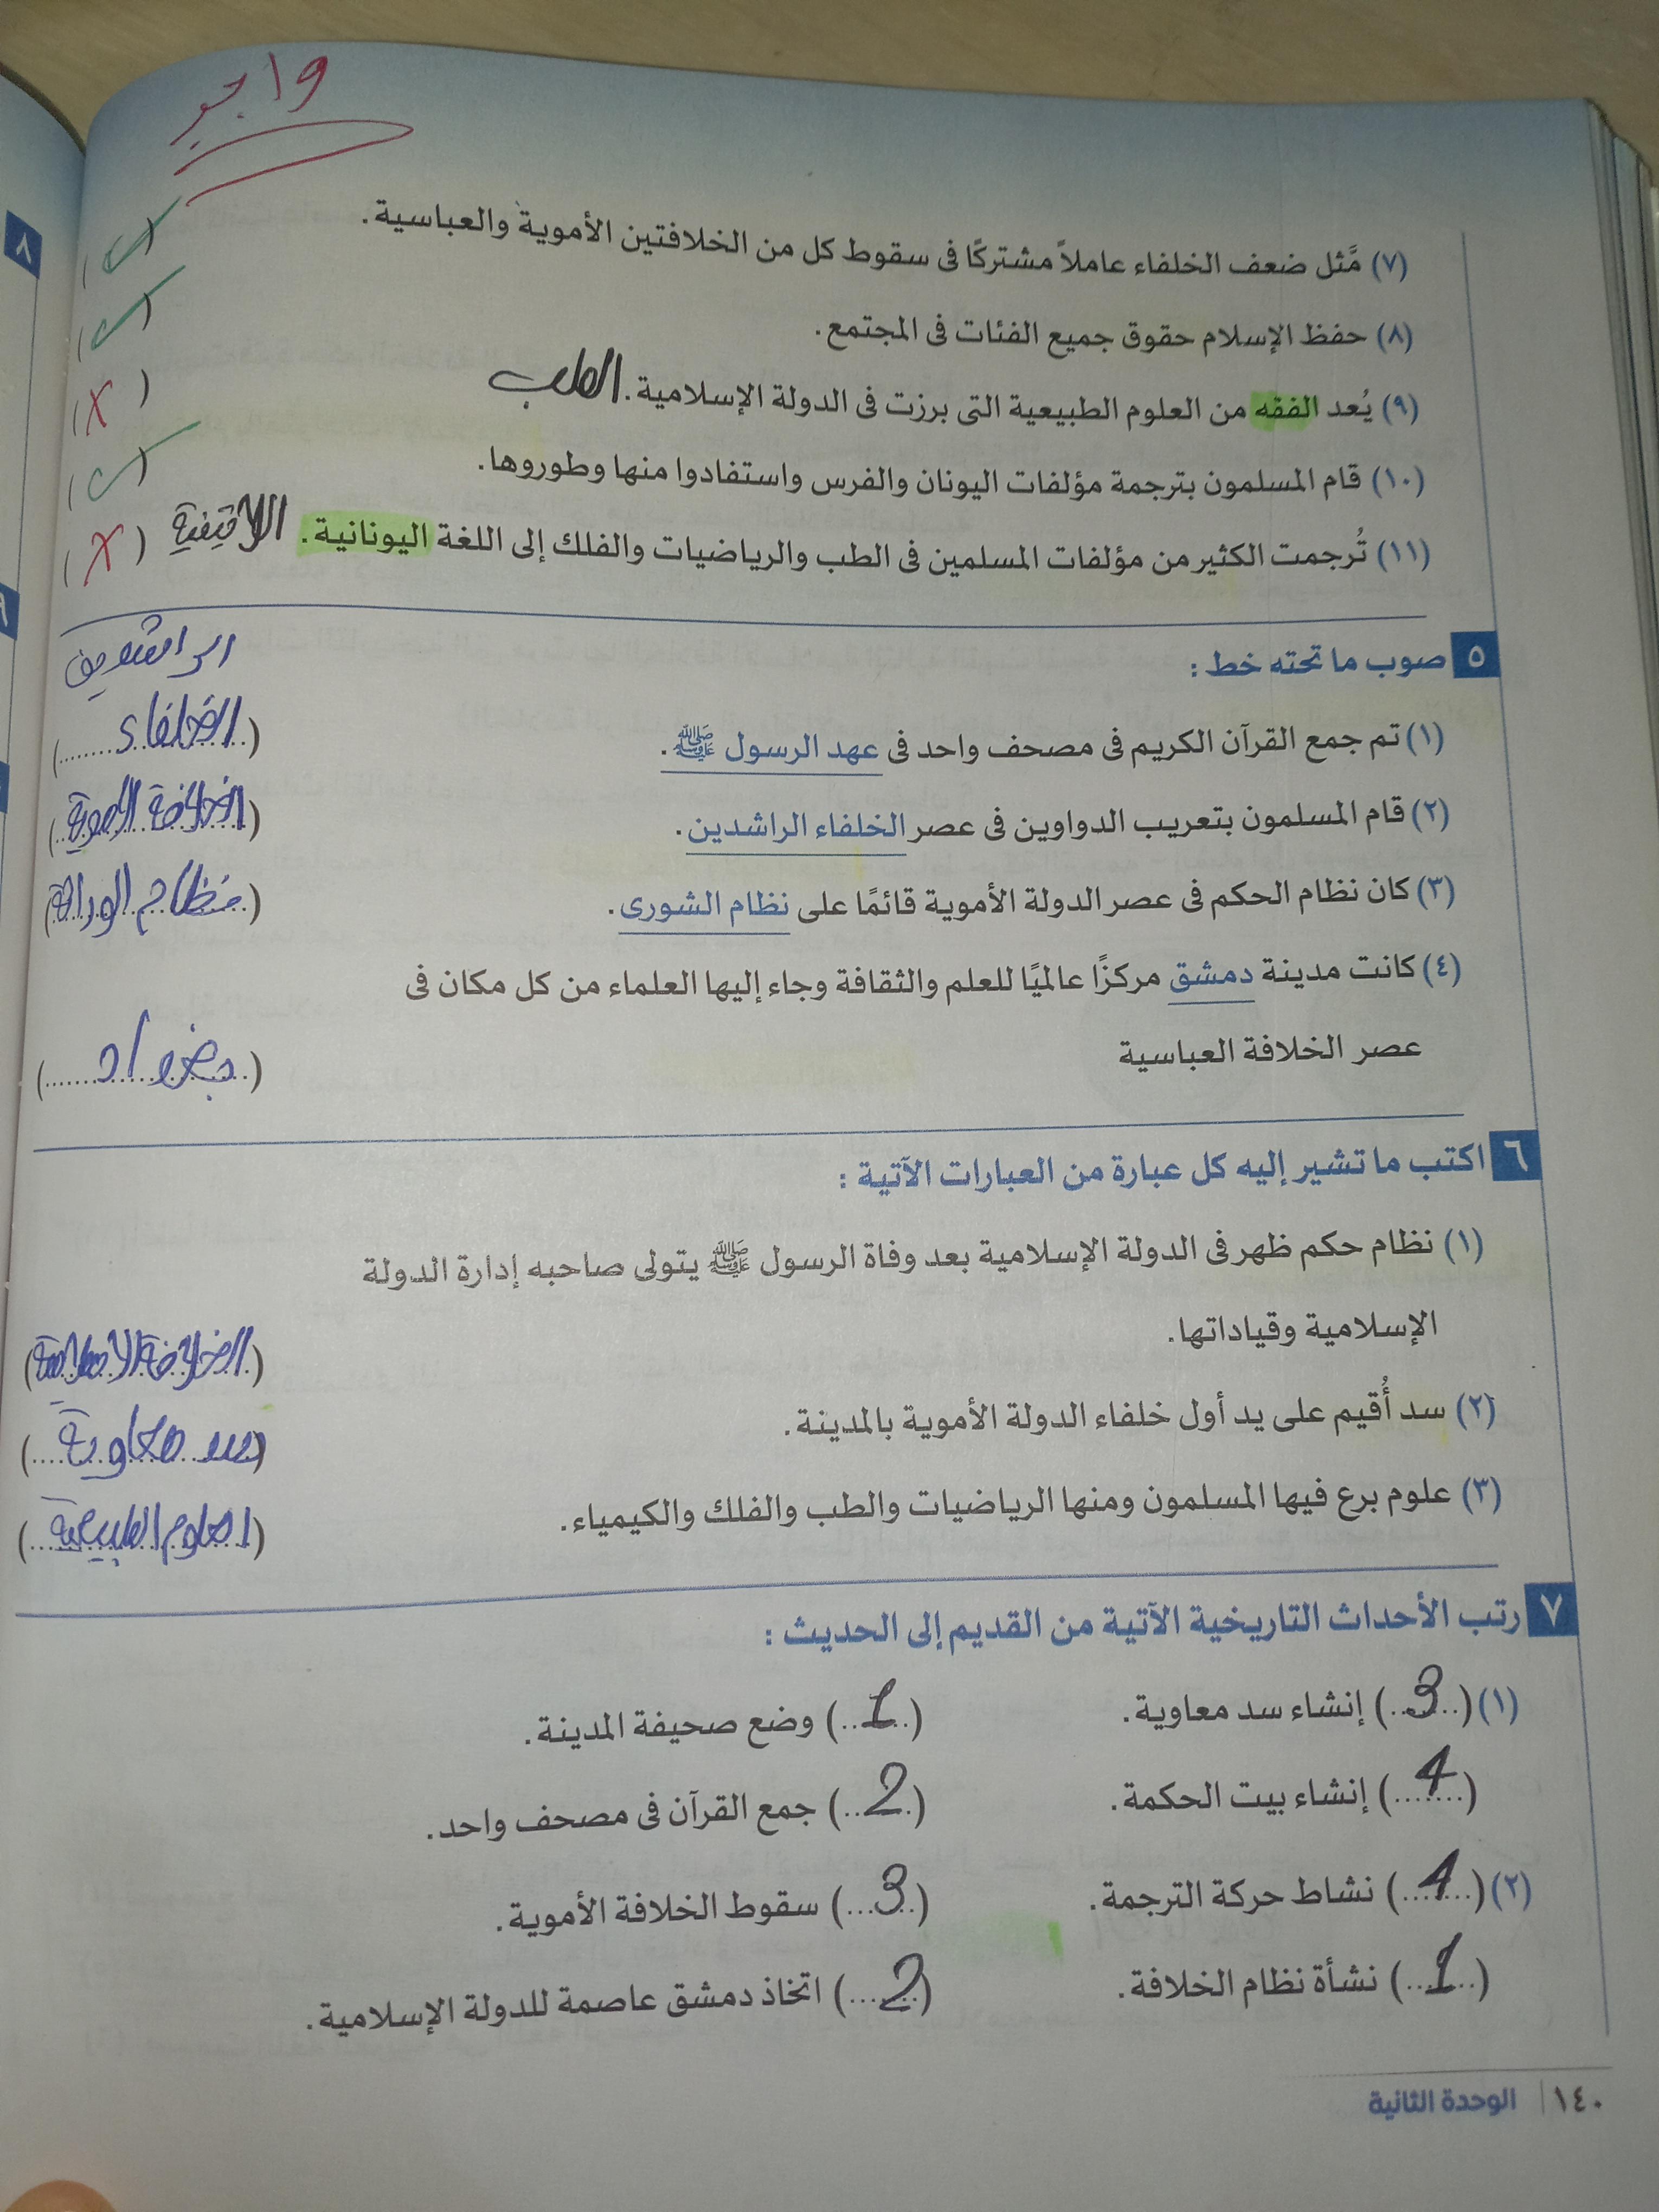 واجب
(٧) مَّثل ضعف الخلفاء عاملاً مشتركًا فى سقوط كل من الخلافتين الأموية والعباسية. (✓)
(٨) حفظ الإسلام حقوق جميع الفئات فى المجتمع. (✓)
(٩) يُعد الفقه من العلوم الطبيعية التى برزت فى الدولة الإسلامية. الطب (X)
(١٠) قام المسلمون بترجمة مؤلفات اليونان والفرس واستفادوا منها وطوروها. (✓)
(١١) تُرجمت الكثير من مؤلفات المسلمين فى الطب والرياضيات والفلك إلى اللغة اليونانية. (X)
٥ صوب ما تحته خط :
الراشدين
(١) تم جمع القرآن الكريم فى مصحف واحد فى عهد الرسول ﷺ. (الخلفاء)
(٢) قام المسلمون بتعريب الدواوين فى عصر الخلفاء الراشدين. (الخلافة الأموية)
(٣) كان نظام الحكم فى عصر الدولة الأموية قائمًا على نظام الشورى. (نظام الوراثة)
(٤) كانت مدينة دمشق مركزًا عالميًا للعلم والثقافة وجاء إليها العلماء من كل مكان فى
عصر الخلافة العباسية (بغداد)
٦ اكتب ما تشير إليه كل عبارة من العبارات الآتية :
(١) نظام حكم ظهر فى الدولة الإسلامية بعد وفاة الرسول ﷺ يتولى صاحبه إدارة الدولة
الإسلامية وقياداتها. (الخلافة الاسلامية)
(٢) سد أُقيم على يد أول خلفاء الدولة الأموية بالمدينة. (سد معاوية)
(٣) علوم برع فيها المسلمون ومنها الرياضيات والطب والفلك والكيمياء. (العلوم الطبيعية)
٧ رتب الأحداث التاريخية الآتية من القديم إلى الحديث :
(١) (3) إنشاء سد معاوية. (1) وضع صحيفة المدينة.
(4) إنشاء بيت الحكمة. (2) جمع القرآن فى مصحف واحد.
(٢) (4) نشاط حركة الترجمة. (3) سقوط الخلافة الأموية.
(1) نشأة نظام الخلافة. (2) اتخاذ دمشق عاصمة للدولة الإسلامية.
١٤٠ | الوحدة الثانية
٨